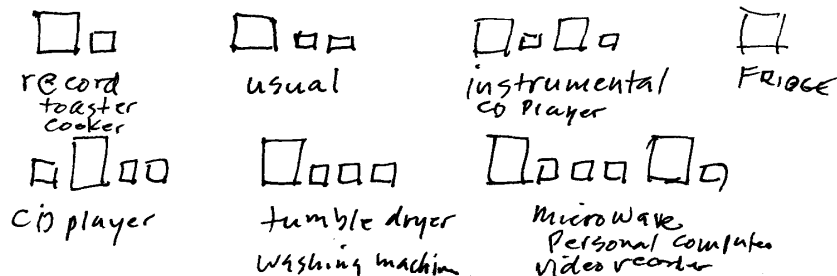 record
toaster
cooker
usual
instrumental
CD Player
FRIDGE
CD player
tumble dryer
washing machine
microwave
Personal computer
video recorder